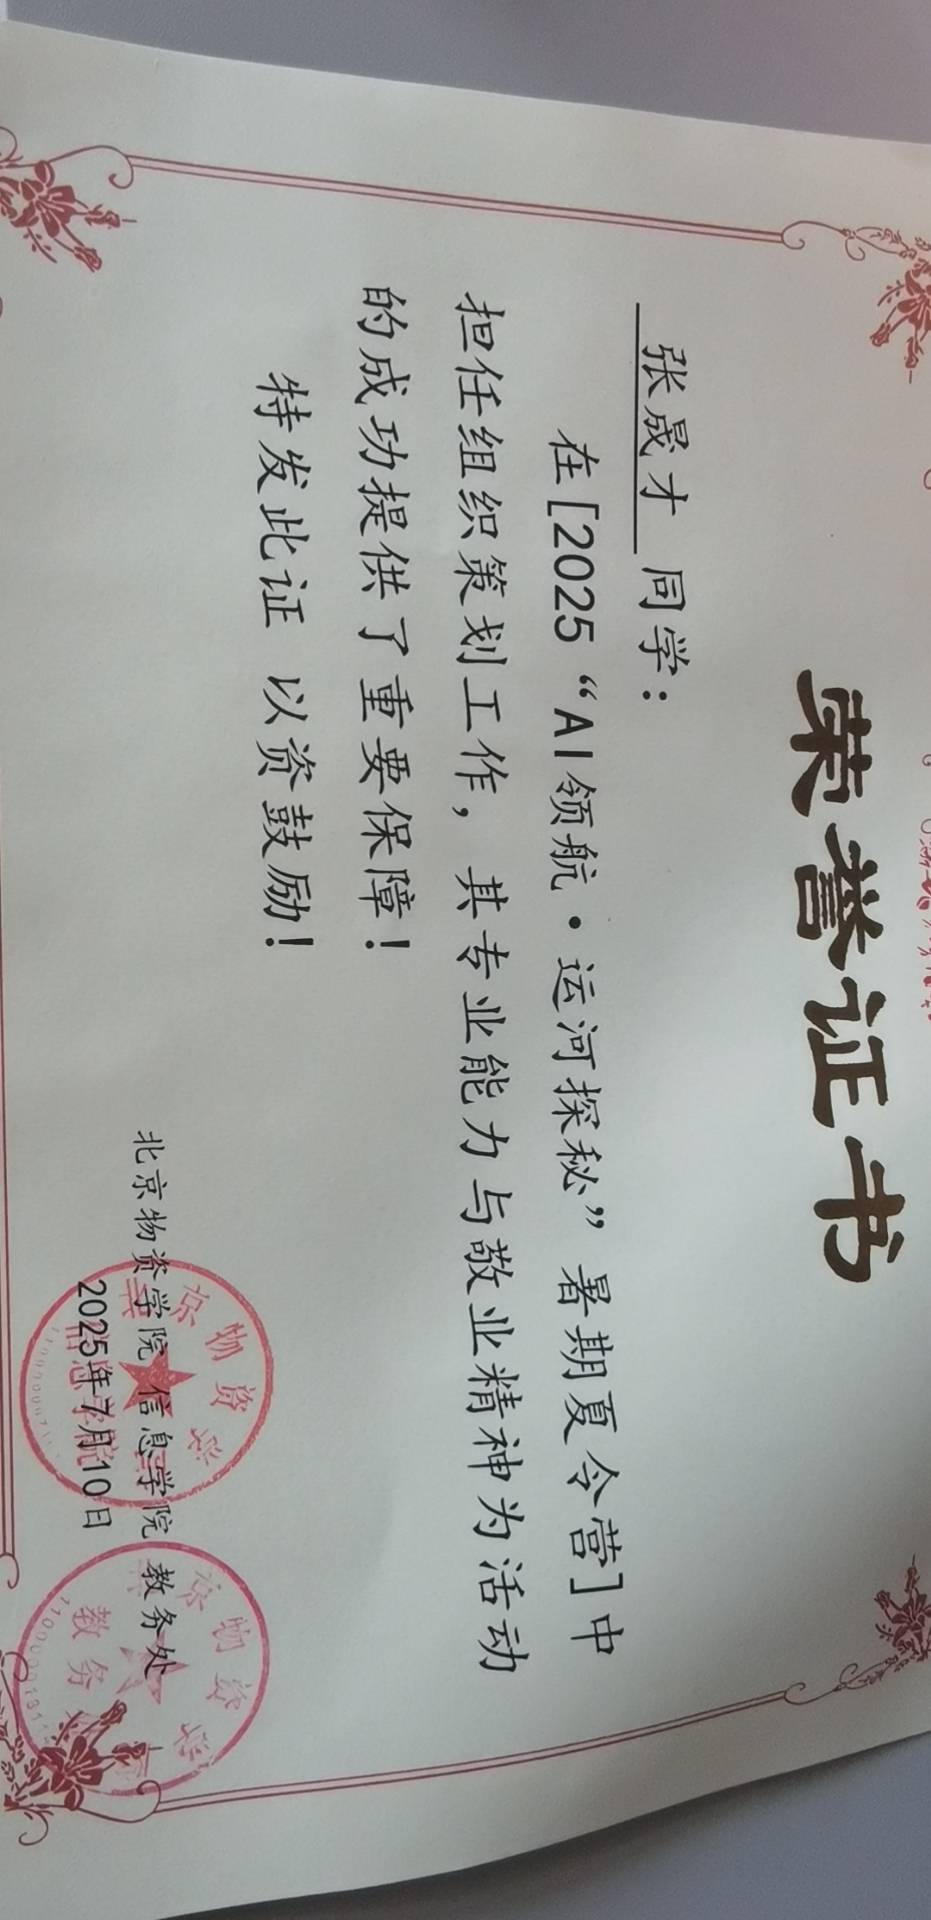 荣誉证书
张晟才 同学：
在[2025“AI领航·运河探秘”暑期夏令营]中
担任组织策划工作，其专业能力与敬业精神为活动
的成功提供了重要保障！
特发此证 以资鼓励！
北京物资学院 信息学院 教务处
2025年7月10日